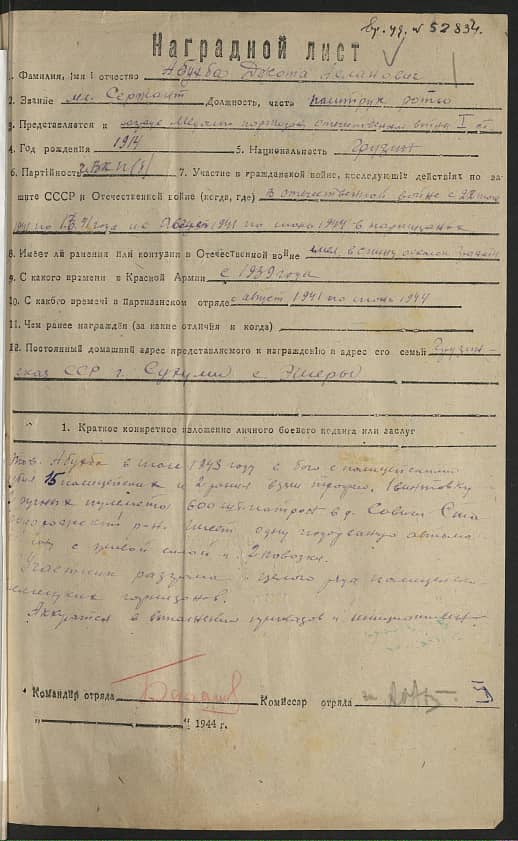 Вр. уд. № 52834.
Наградной лист
1. Фамилия, имя и отчество Абухба Асланович
2. Звание мл. Сержант Должность, часть политрук роты
3. Представляется к Медали партизан отечественной войны I ст
4. Год рождения 1914 5. Национальность Грузин
6. Партийность ВКП(б) 7. Участие в гражданской войне, последующих действиях по за-
щите СССР и Отечественной войне (когда, где) В отечественной войне с 22
1941 по года и с Август 1941 по июль 1944 в партизанах
8. Имеет ли ранения или контузии в Отечественной войне имел в спину
9. С какого времени в Красной Армии с 1939 года
10. С какого времени в Партизанском отряде с август 1941 по июль 1944
11. Чем ранее награждён (за какие отличия и когда)
12. Постоянный домашний адрес представляемого к награждению и адрес его семьи Грузин-
ская ССР г. Сухуми с. Эшеры
1. Краткое конкретное изложение личного боевого подвига или заслуг
Тов. Абухба в 1943 году в бою с полицейскими
убил 15 полицейских и 2 ранил взял трофеи. 1 винтовку
ручных пулемета 600 шт. патрон в д.
р-на. Имеет одну подорваную автома-
шину с живой силой и 2 повозки.
Участник разгрома целого ряда полицей-
гарнизонов.
Аккуратен в выполнении приказов и инициативен.
Командир отряда Комиссар отряда
" " 1944 г.